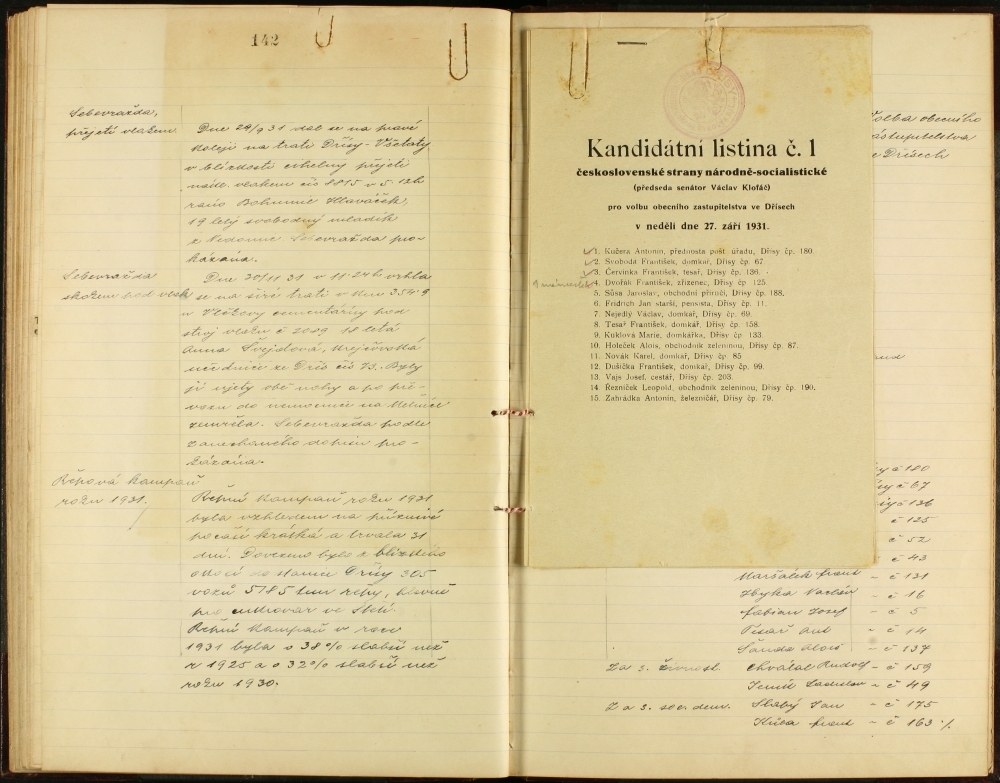 142
Sebevražda,
přejetí vlakem
Dne 29/9 31 dal se na pravé
koleji na trati Dřísy - Všetaty
v blízkosti cihelny přejeti
nákl. vlakem čís 8815 v 5.12h
ráno Bohumil Hlaváček,
19 letý svobodný mladík
z Nedomic. Sebevražda pro-
kázána.
Sebevražda
skokem pod vlak
Dne 20/11 31 v 11.24h vrhla
se na širé trati v km 354.9
u Vlčkovy cementárny pod
stroj vlaku č 2089 18 letá
Anna Švejdová, krejčovská
učednice ze Dřís čís 73. Byly
jí ujety obě nohy a po pře-
vozu do nemocnice na Mělníce
zemřela. Sebevražda podle
zanechaného dopisu pro-
kázána.
Řepová kampaň
roku 1931.
Řepní kampaň roku 1931
byla vzhledem na příznivé
počasí krátká a trvala 31
dní. Dovezeno bylo z blízkého
okolí do stanice Dřísy 305
vozů 5185 tun řepy, hlavně
pro cukrovar ve
Řepní kampaň v roce
1931 byla o 38% slabší než
r 1925 a o 32% slabší než
roku 1930.
Kandidátní listina č. 1
československé strany národně-socialistické
(předseda senátor Václav Klofáč)
pro volbu obecního zastupitelstva ve Dřísech
v neděli dne 27. září 1931.
1. Kučera Antonín, přednosta pošt. úřadu, Dřísy čp. 180.
2. Svoboda František, domkář, Dřísy čp. 67.
3. Červinka František, tesař, Dřísy čp. 136.
4. Dvořák František, zřízenec, Dřísy čp. 125.
5. Sůsa Jaroslav, obchodní příručí, Dřísy čp. 188.
6. Fridrich Jan starší, pensista, Dřísy čp. 11.
7. Nejedlý Václav, domkář, Dřísy čp. 69.
8. Tesař František, domkář, Dřísy čp. 158.
9. Kuklová Marie, domkářka, Dřísy čp. 133
10. Holeček Alois, obchodník zeleninou, Dřísy čp. 87.
11. Novák Karel, domkář, Dřísy čp. 85
12. Dušička František, domkář, Dřísy čp. 99.
13. Vajs Josef, cestář, Dřísy čp. 203.
14. Řezníček Leopold, obchodník zeleninou, Dřísy čp. 190.
15. Zahrádka Antonín, železničář, Dřísy čp. 79.
Volba obecního
zastupitelstva
Dřísech
č 180
č 67
č 136
č 125
č 52
č 43
Maršálek Frant - č 131
Zbyka Václav - č 16
Fabian Josef - č 5
Pisař Ant - č 14
Šanda Alois - č 137
Za s. živnost. Chválal Rudolf - č 159
Ladislav - č 49
Za s. soc. dem. Slabý Jan - č 175
Kůba Frant - č 163 ./.